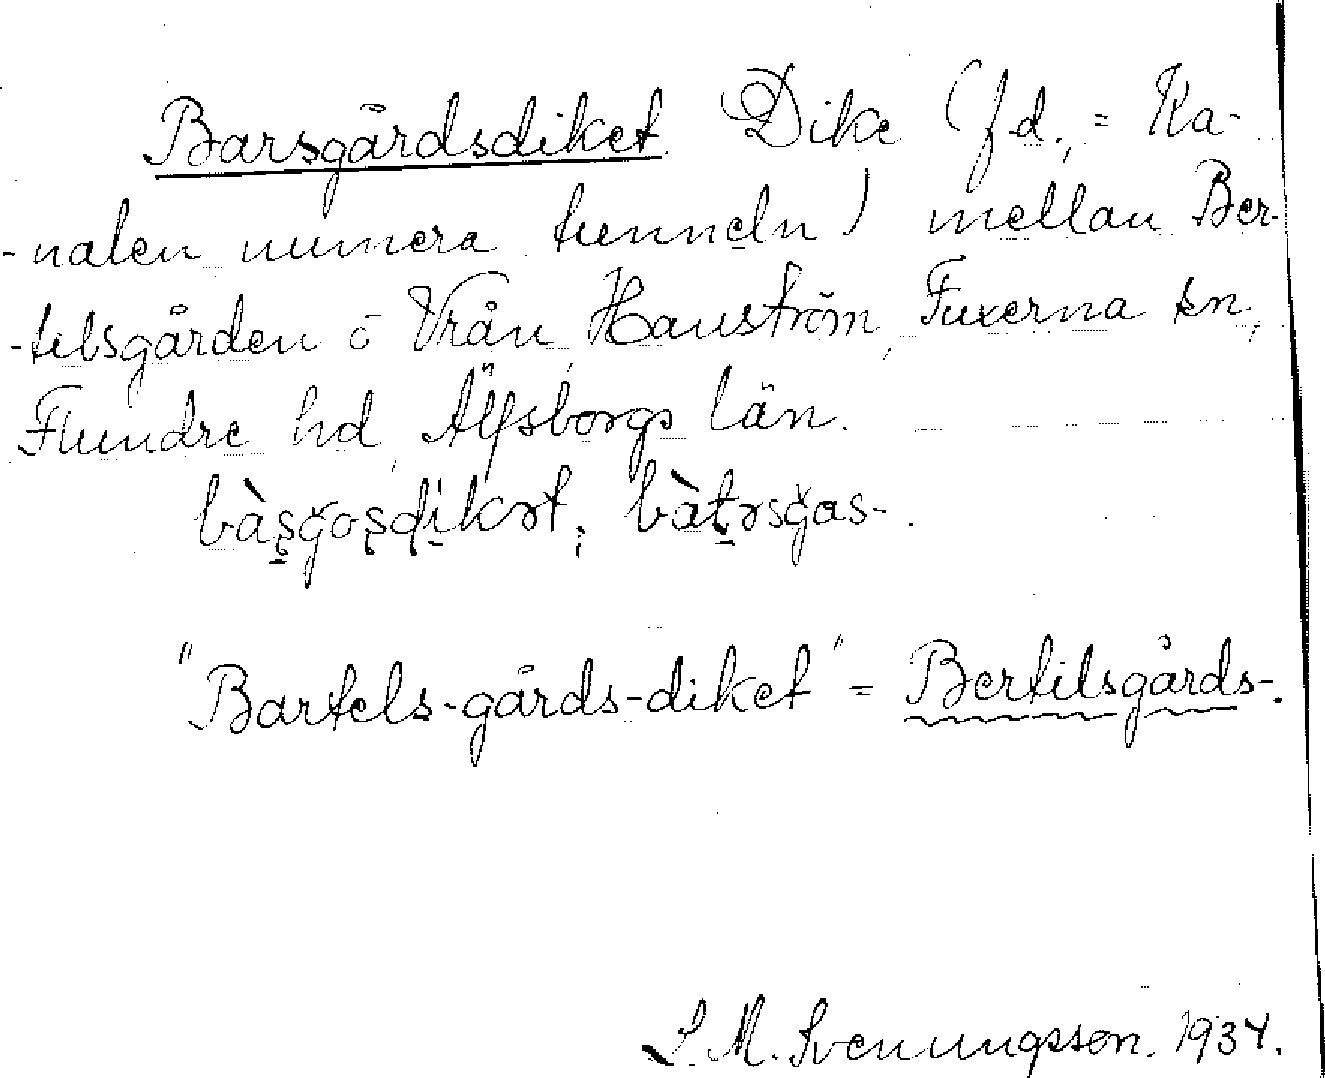 Barsgårdsdiket Dike (f d. = Ka-
-nalen numera tunneln) mellan Ber-
-telsgården o Vrån, Hanström, Fuxerna sn,
Flundre hd, Älfsborgs län.
"Bartels-gårds-diket" = Bertilsgårds-.
S. M. Svenungsson. 1934.